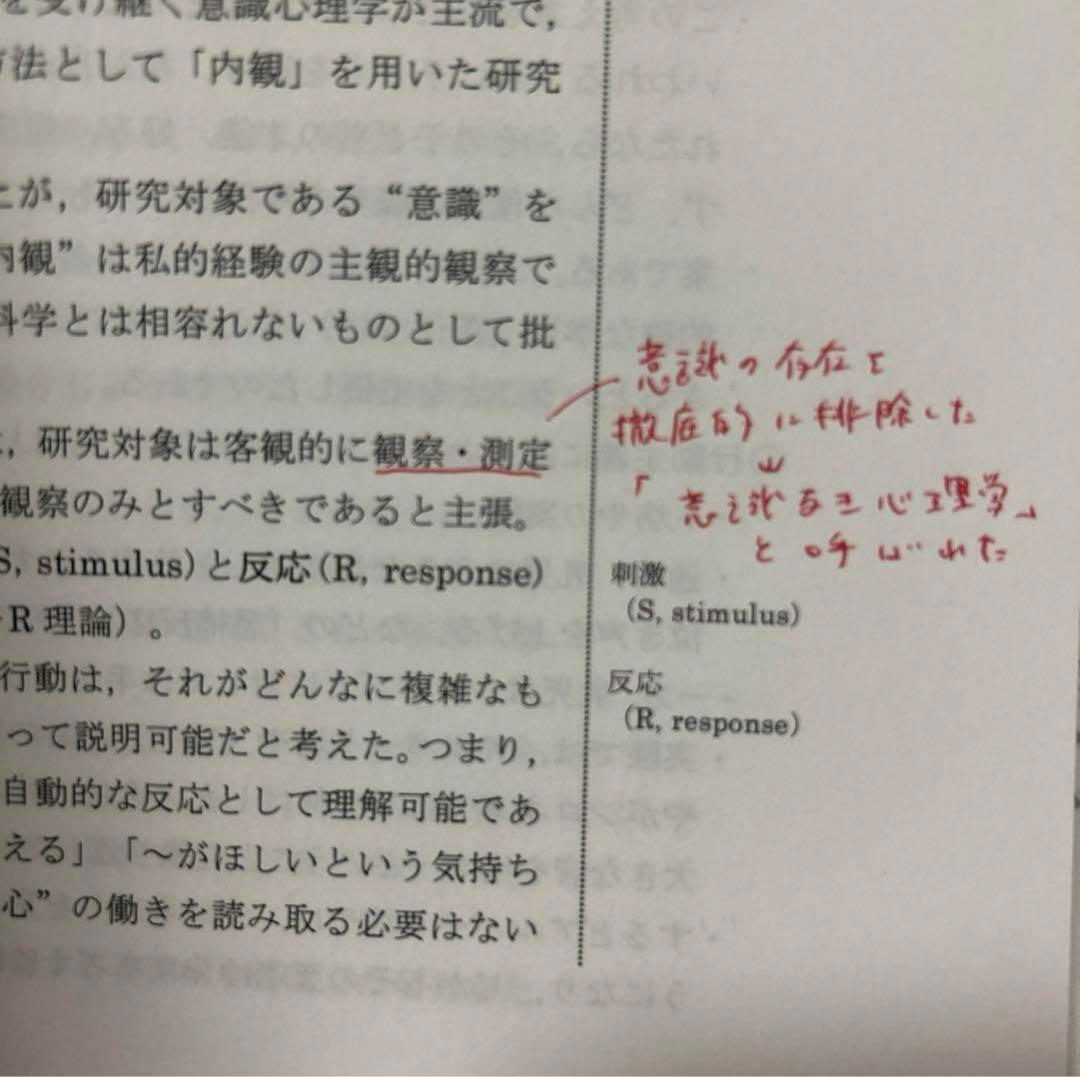 を受け継ぐ意識心理学が主流で，
方法として「内観」を用いた研究
が，研究対象である“意識”を
内観”は私的経験の主観的観察で
科学とは相容れないものとして批
，研究対象は客観的に観察・測定
観察のみとすべきであると主張。
S, stimulus)と反応(R, response)
R 理論）。
行動は，それがどんなに複雑なも
って説明可能だと考えた。つまり，
自動的な反応として理解可能であ
える」「～がほしいという気持ち
心”の働きを読み取る必要はない
意識の存在を
徹底的に排除した
↓
「意識なき心理学」
と呼ばれた
刺激
(S, stimulus)
反応
(R, response)